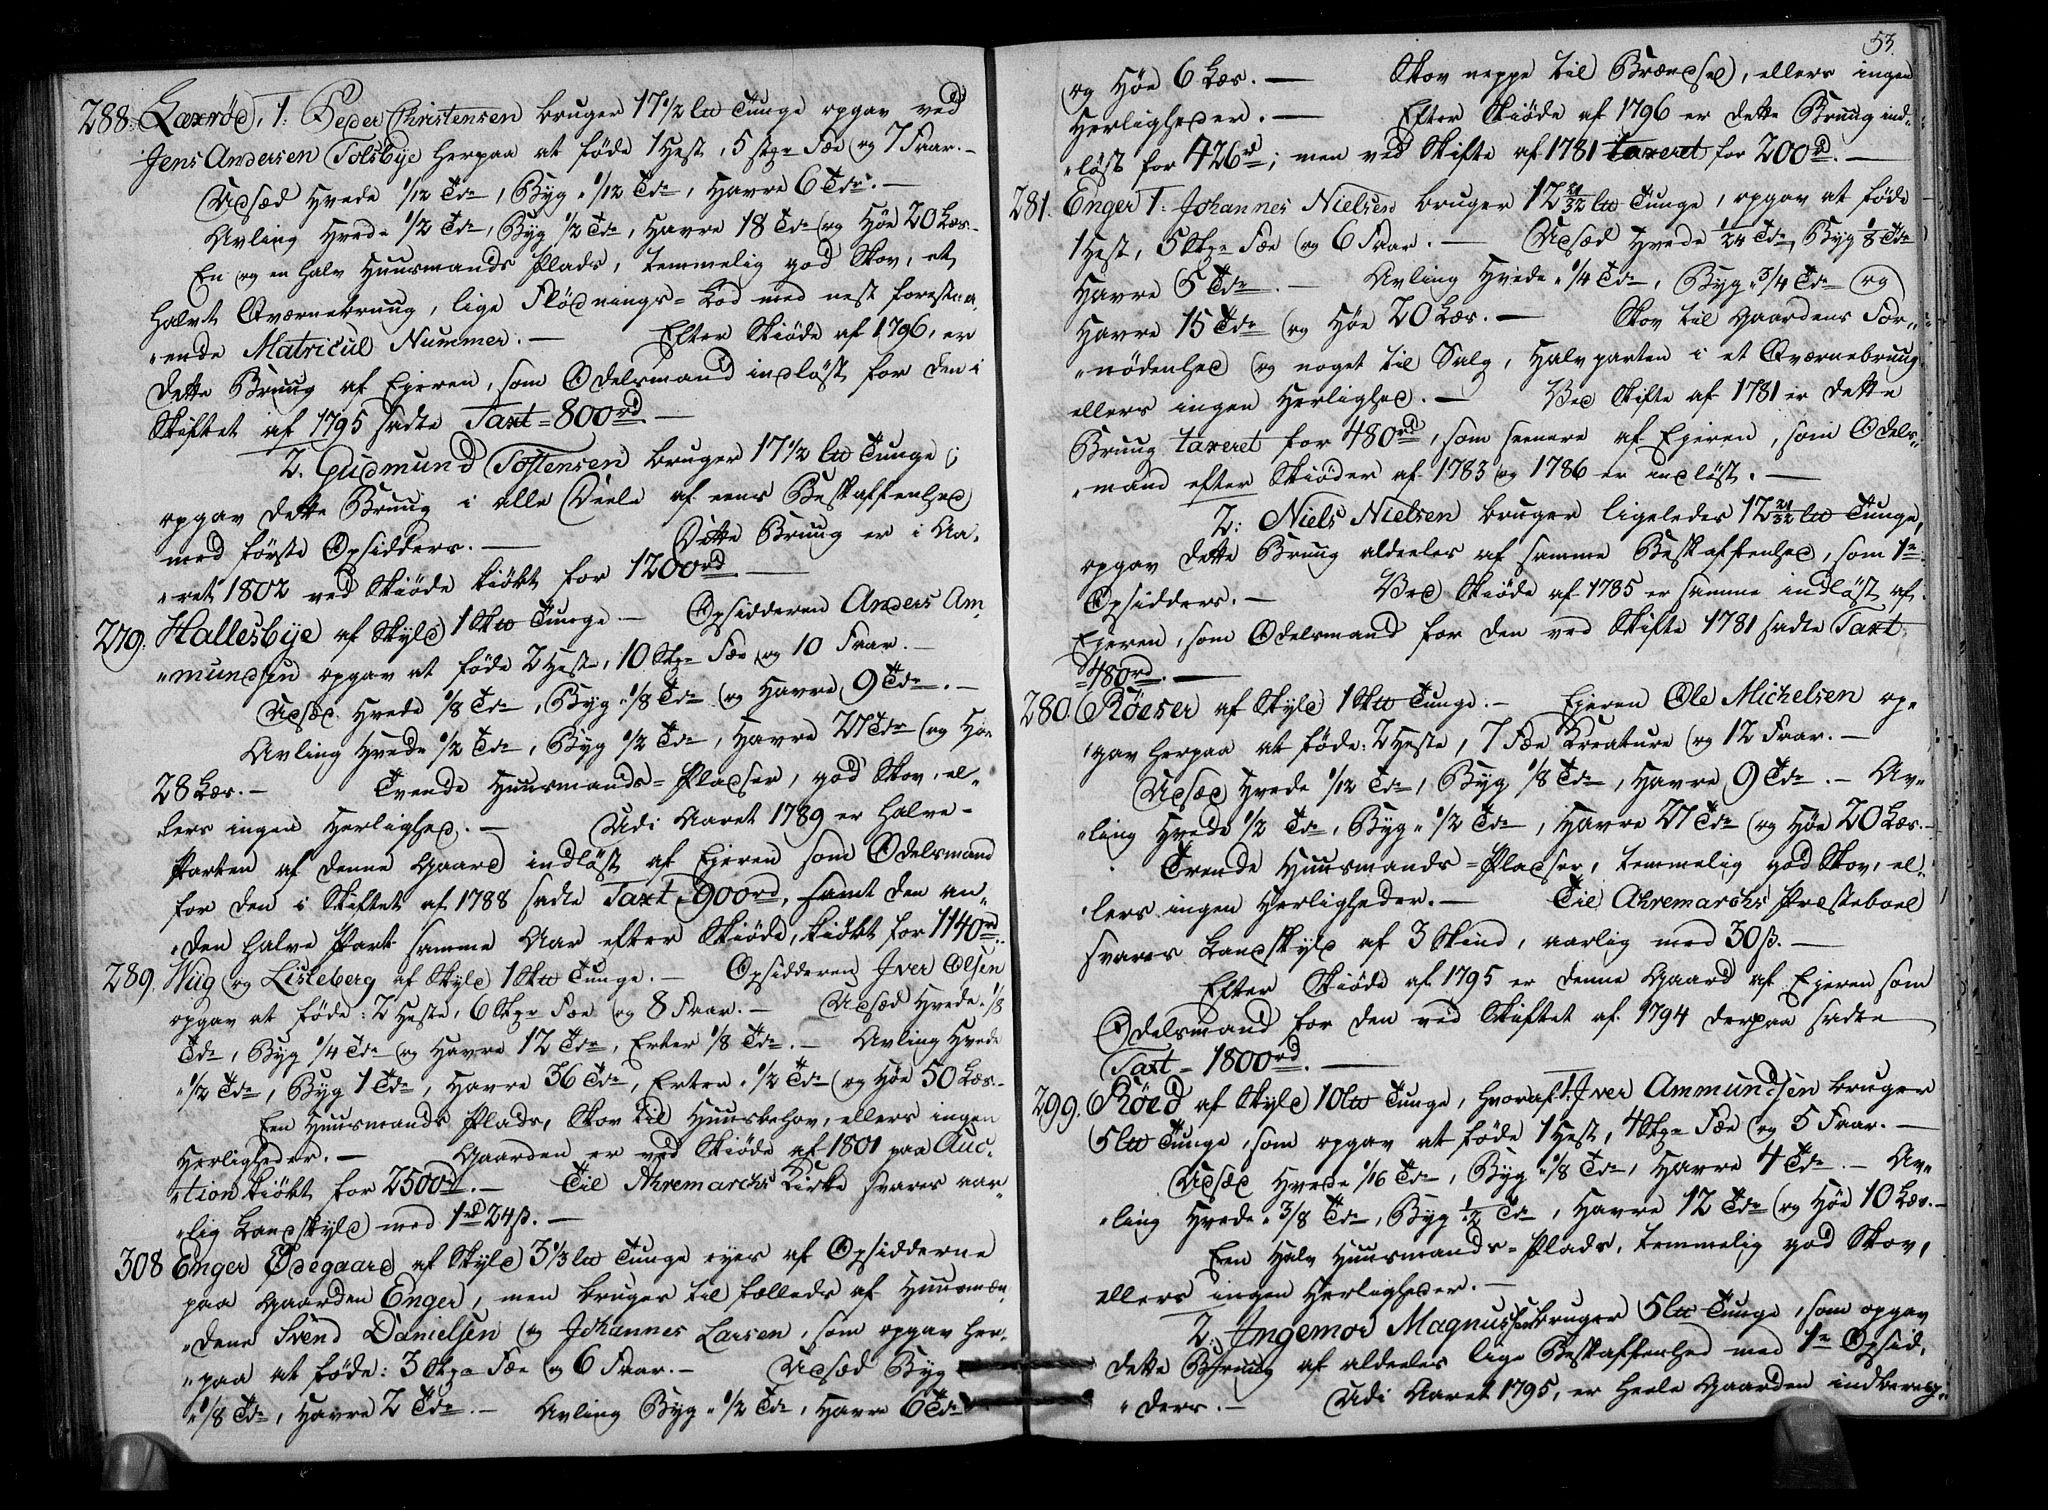 288. Laxrød, 1: Peder Christensen bruger 17 1/2 l℔ Tunge opgav ved
Jens Andersen Tolsbye herpaa at føde 1 Hest, 5 stkr Fæe og 7 Faar. —
Udsæd Hvede 1/12 Tde, Byg 1/12 Tde, Havre 6 Tdr. —
Avling Hvede 1/2 Tde, Byg 1/2 Tde, Havre 18 Tdr og Høe 20 Læs. —
En og en halv Huusmands Plads, temmelig god Skov, et
halvt Qværnebruug, lige Flødnings-Lod med nest foresta-
"ende Matricul Nummer. — Efter Skiøde af 1796, er
dette Bruug af Ejeren, som Odelsmand indløst for den i
Skiftet af 1795 satte Taxt = 800 rd. —
2. Gudmund Tostensen bruger 17 1/2 l℔ Tunge;
opgav dette Bruug i alle Deele af eens Beskaffenhed
med første Opsidders. — Dette Bruug er i Aa-
"ret 1802 ved Skiøde kiøbt for 1200 rd. —
279. Hallesbye af Skyld 1 Sk℔ Tunge — Opsidderen Anders Am-
"mundsen opgav at føde 2 Heste, 10 Stkr Fæe og 10 Faar. —
Udsæd Hvede 1/8 Tde, Byg 1/8 Tde og Havre 9 Tdr. —
Avling Hvede 1/2 Tde, Byg 1/2 Tde, Havre 27 Tdr og Høe
28 Læs. — Tvende Huusmands-Pladser, god Skov, el-
lers ingen Herlighed. — Udi Aaret 1789 er halve-
Parten af denne Gaard indløst af Ejeren som Odelsmand
for den i Skiftet af 1788 satte Taxt = 900 rd, samt den an-
"den halve Part samme Aar efter Skiøde, kiøbt for 1140 rd.
289. Wiig og Lisleberg af Skyld 1 Sk℔ Tunge. — Opsidderen Iver Olsen
opgav at føde: 2 Heste, 6 Stkr Fæe og 8 Faar. — Udsæd Hvede 1/8
Tde, Byg 1/4 Tde og Havre 12 Tdr, Erter 1/8 Tde. — Avling Hvede
1/2 Tde, Byg 1 Tde, Havre 36 Tdr, Erter 1/2 Tde og Høe 50 Læs. —
Een Huusmands Plads, Skov til Huusbehov, ellers ingen
Herligheder. — Gaarden er ved Skiøde af 1801 paa Auc-
"tion kiøbt for 2500 rd. — Til Ahremarchs Kirke svares aar-
"lig Landskyld med 1 rd 24 ß. —
308 Enger Ødegaard af Skyld 3 1/3 l℔ Tunge eyes af Opsidderne
paa Gaarden Enger, men bruges til fælleds af Huusmæn-
"dene Svend Danielsen og Johannes Larsen, som opgav her-
"paa at føde: 3 Stkr Fæe og 6 Faar. — Udsæd Byg
1/8 Tde, Havre 2 Tdr. — Avling Byg 1/2 Tde, Havre 6 Tdr
53.
og Høe 6 Læs. — Skov neppe til Brændsel, ellers ingen
Herligheder. — Efter Skiøde af 1796 er dette Bruug ind-
"løst for 426 rd; men ved Skifte af 1781 taxeret for 200 rd. —
281. Enger 1. Johannes Nielsen bruger 12 21/32 l℔ Tunge, opgav at føde
1 Hest, 5 Stkr Fæe og 6 Faar. — Udsæd Hvede 1/24 Tde, Byg 1/8 Tde
Havre 5 Tdr. — Avling Hvede 1/4 Tde, Byg 3/4 Tde og
Havre 15 Tdr og Høe 20 Læs. — Skov til Gaardens For-
"nødenhed og noget til Salg, Halvparten i et Qværnebruug,
ellers ingen Herlighed. — Ved Skifte af 1781 er dette
Bruug taxeret for 480 rd, som senere af Ejeren, som Odels-
"mand efter Skiøder af 1783 og 1786 er indløst. —
2: Niels Nielsen bruger ligeledes 12 21/32 l℔ Tunge,
opgav dette Bruug aldeeles af samme Beskaffenhed, som 1te
Opsidders. — Ved Skiøde af 1785 er samme indløst af
Ejeren, som Odelsmand for den ved Skifte 1781 satte Taxt
= 480 rd. —
280 Røeser af Skyld 1 Sk℔ Tunge. — Ejeren Ole Michelsen op-
"gav herpaa at føde: 2 Heste, 7 Fæe Kreature og 12 Faar. —
Udsæd Hvede 1/12 Tde, Byg 1/8 Tde, Havre 9 Tdr. — Av-
"ling Hvede 1/2 Tde, Byg 1/2 Tde, Havre 27 Tdr og Høe 20 Læs. —
Trende Huusmands-Pladser, temmelig god Skov, el-
"lers ingen Herligheder. — Til Ahremarchs Præsteboel
svares Landskyld af 3 Skind, aarlig med 30 ß. —
Efter Skiøde af 1795 er denne Gaard af Ejeren som
Odelsmand for den ved Skiftet af 1794 derpaa satte
Taxt = 1800 rd. —
299. Røed af Skyld 10 l℔ Tunge, hvoraf 1. Iver Ammundsen bruger
5 l℔ Tunge, som opgav at føde 1 Hest, 4 Stkr Fæe og 5 Faar. —
Udsæd Hvede 1/16 Tde, Byg 1/8 Tde, Havre 4 Tdr. — Av-
"ling Hvede 3/8 Tde, Byg 1/2 Tde, Havre 12 Tdr og Høe 10 Læs. —
Een halv Huusmands-Plads, temmelig god Skov,
ellers ingen Herligheder. —
2. Ingemor Magnussen bruger 5 l℔ Tunge, som opgav
dette Bruug af aldeeles lige Beskaffenhed med 1te Opsid-
"ders. — Udi Aaret 1795, er heele Gaarden indbereg-